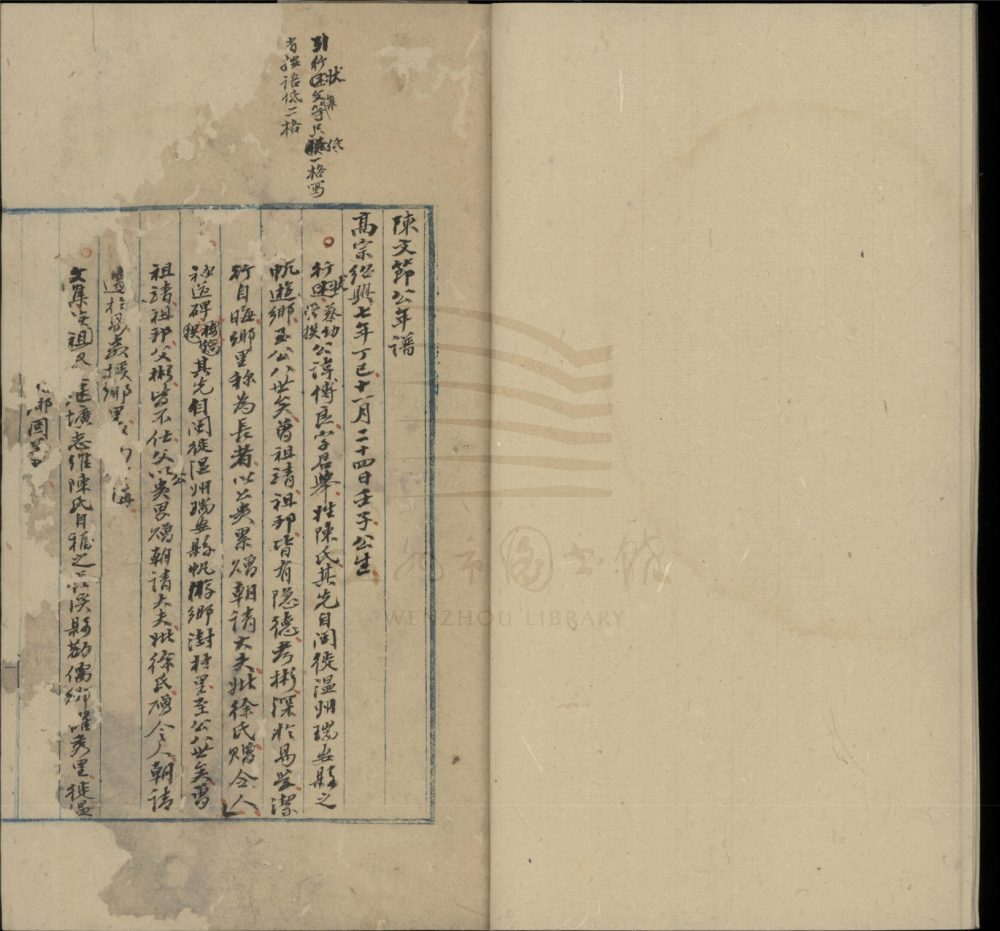 引行狀文集等只低一格寫
者案語低二格
陳文節公年譜
高宗紹興七年丁巳十一月二十四日壬子公生
行狀蔡幼學撰公諱傅良字君舉姓陳氏其先自閩徙溫州瑞安縣之
帆遊鄉至公八世矣曾祖靖祖邦皆有隱德考彬深於易學潔
行自晦鄉里稱為長者以公貴累贈朝請大夫妣徐氏贈令人
神道碑樓鑰撰其先自閩徙溫州瑞安縣帆游鄉澍村里至公八世矣曾
祖靖祖邦父彬皆不仕父以公貴累贈朝請大夫妣徐氏贈令人朝請
鄉里
文集 祖 壙志維陳氏自 之長溪縣勸儒鄉 秀里徙溫
溫州市圖書館
WENZHOU LIBRARY